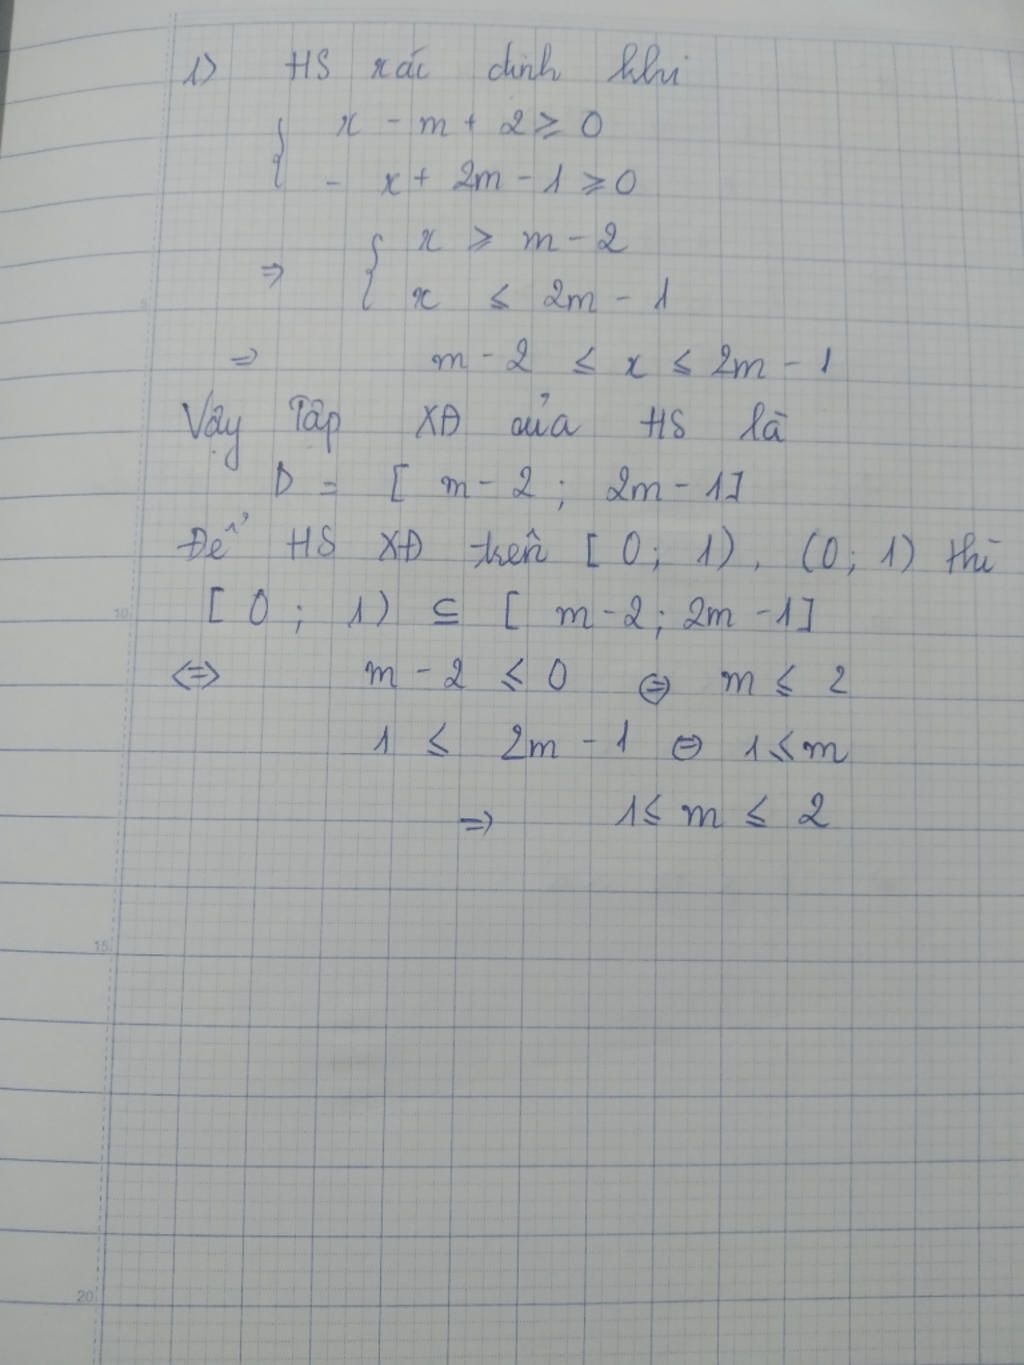 1) HS xác định khi
{ x - m + 2 ≥ 0
- x + 2m - 1 ≥ 0
⇒ { x ≥ m - 2
x ≤ 2m - 1
⇒ m - 2 ≤ x ≤ 2m - 1
Vậy Tập XĐ của HS là
D = [ m - 2 ; 2m - 1]
Để HS XĐ trên [ 0 ; 1) , (0 ; 1) thì
[ 0 ; 1) ⊆ [ m - 2 ; 2m - 1]
⇔ m - 2 ≤ 0 ⇔ m ≤ 2
1 ≤ 2m - 1 ⇔ 1 ≤ m
⇒ 1 ≤ m ≤ 2
5
10
15
20